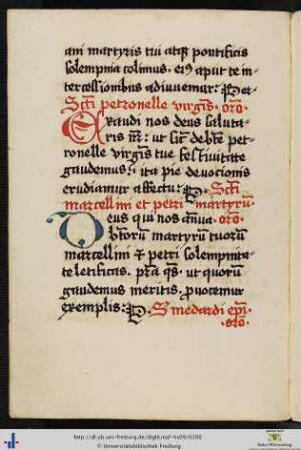 ani martyris tui atqꝫ pontificis
solempnia colimus. eiꝰ aput te in-
tercessionibus adiuuemur: Per
Scti petronelle virgis. oro.
Exaudi nos deus saluta-
ris nr: ut sic de bte pet-
ronelle virgis tue festiuitate
gaudemus: ita pie deuocionis
erudiamur affectu: P. Scti
marcellini et petri martyru.
Deus qui nos annua oro.
btorum martyru tuoru
marcellini et petri solempnita-
te letificas. pra qs. ut quoru
gaudemus meritis. prouocemur
exemplis: P. S medardi epi.
oro.
http://dl.ub.uni-freiburg.de/diglit/
© Universitätsbibliothek Freiburg
Baden-Württemberg